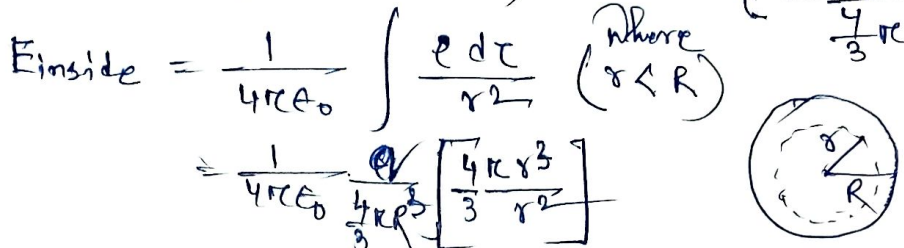 4/3 π
E inside = 1/4πε₀ ∫ ρ dτ / r² (where r < R)
= 1/4πε₀ · Q / (4/3 πR³) [4/3 πr³ / r²]
r
R